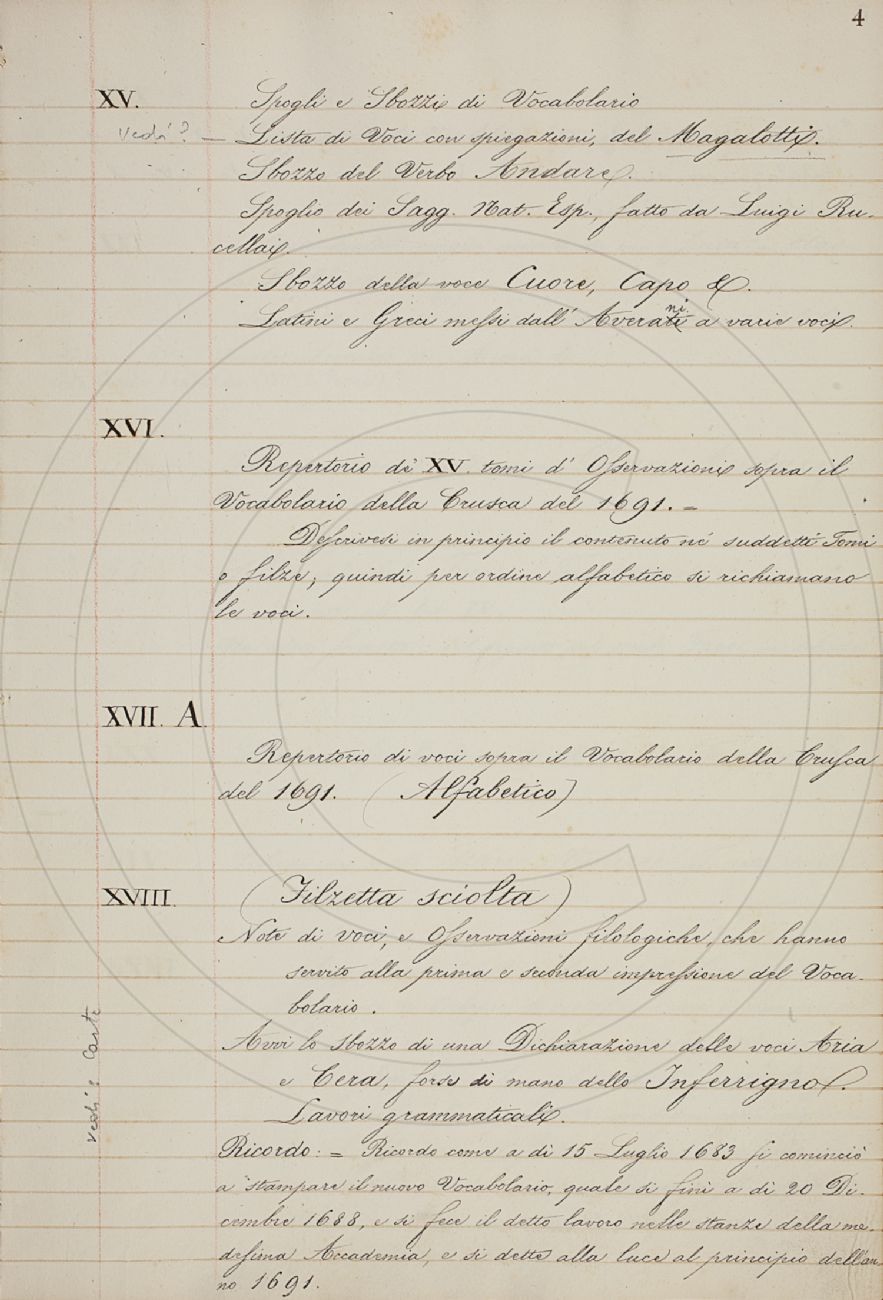 4
XV.
Spogli e Sbozzi di Vocabolario
Vedi? — Lista di Voci con spiegazioni, del Magalotti.
Sbozzo del Verbo Andare.
Spoglio dei Sagg. Nat. Esp., fatto da Luigi Ru-
cellai.
Sbozzo della voce Cuore, Capo &.
ni
Latini e Greci messi dall' Averati a varie voci.
XVI.
Repertorio di XV. tomi d' Osservazioni sopra il
Vocabolario della Crusca del 1691. =
Descrivesi in principio il contenuto né suddetti Tomi
o filze; quindi per ordine alfabetico si richiamano
le voci.
XVII. A.
Repertorio di voci sopra il Vocabolario della Crusca
del 1691. (Alfabetico)
XVIII.
(Filzetta sciolta)
Note di voci, e Osservazioni filologiche, che hanno
servito alla prima e seconda impressione del Voca-
bolario.
Avvi lo sbozzo di una Dichiarazione delle voci Aria
e Cera, forse di mano dello Inferrigno.
Lavori grammaticali.
Vedi? Carte
Ricordo: = Ricordo come a dì 15 Luglio 1683 si cominciò
a stampare il nuovo Vocabolario, quale si finì a dì 20 Di-
cembre 1688, e si fece il detto lavoro nelle stanze della me-
desima Accademia, e si dette alla luce al principio dell'an-
no 1691.